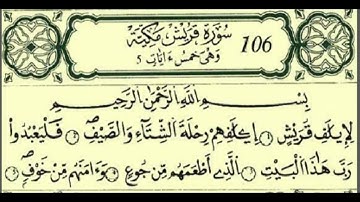 سُورَةُ قُرَيْشٍ مَكِّيَّة
وَهِىَ خَمْسُ ءَايَاتٍ 5
106
بِسْمِ اللَّهِ الرَّحْمَٰنِ الرَّحِيمِ
لِإِيلَٰفِ قُرَيْشٍ ۝ إِۦلَٰفِهِمْ رِحْلَةَ الشِّتَآءِ وَالصَّيْفِ ۝ فَلْيَعْبُدُوا۟
رَبَّ هَٰذَا الْبَيْتِ ۝ الَّذِىٓ أَطْعَمَهُم مِّن جُوعٍ ۝ وَءَامَنَهُم مِّنْ خَوْفٍ ۝